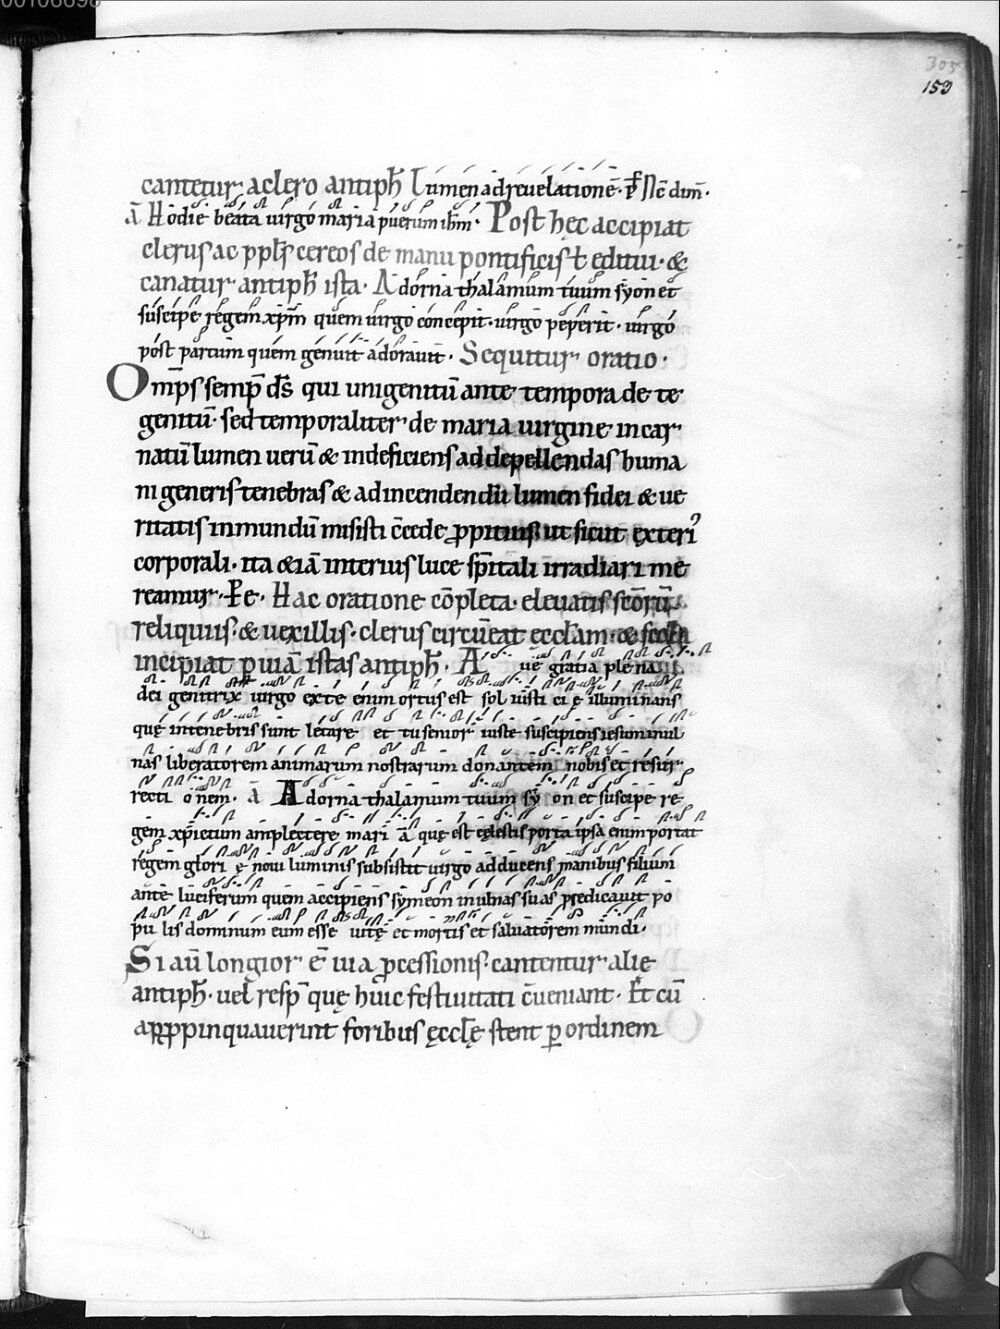 00106698
305
153
cantetur a clero antiph̄ Lumen ad reuelationē. p̄s Nc̄ dim̄.
ā Hodie beata uirgo maria puerum ihm̄. Post hęc accipiat
clerus ac ppl̄s cereos de manu pontificis ł editui. &
canatur antiph̄ ista. Adorna thalamum tuum syon et
suscipe regem xp̄m quem uirgo concepit. uirgo peperit. uirgo
post partum quem genuit adorauit. Sequitur oratio.
Omp̄s semp̄ ds̄ qui unigenitū ante tempora de te
genitū. sed temporaliter de maria uirgine incar
natū lumen uerū & indeficiens ad depellendas huma
ni generis tenebras & ad incendendū lumen fidei & ue
ritatis in mundū misisti c̄cede ꝓpitius ut sicut exteri᷒
corporali. ita & iā interius luce sp̄itali irradiari me
reamur. P̄e. Hac oratione cōpleta. eleuatis sc̄orū
reliquiis. & uexillis. clerus circūeat eccl̄am. &
incipiat ꝑ uiā istas antiph̄. A ue gratia plena
dei genitrix uirgo ex te enim ortus est sol iusti ci ę illuminans
quę in tenebris sunt letare et tu senior iuste suscipiens iesum in ul
nas liberatorem animarum nostrarum donantem nobis et resur
recti o nem. ā Adorna thalamum tuum sy on et suscipe re
gem xp̄ietum amplectere mari ā quę est cęlestis porta ipsa enim portat
regem glori ę noui luminis subsistit uirgo adducens manibus filium
ante luciferum quem accipiens symeon in ulnas suas predicauit po
pu lis dominum eum esse uitę et mortis et saluatorem mundi.
Si aū longior ē uia ꝓcessionis. cantentur alie
antiph̄. uel resp̄ quę huic festiuitati c̄ueniant. Et cū
apꝓpinquauerint foribus ęccl̄ę stent ꝑ ordinem